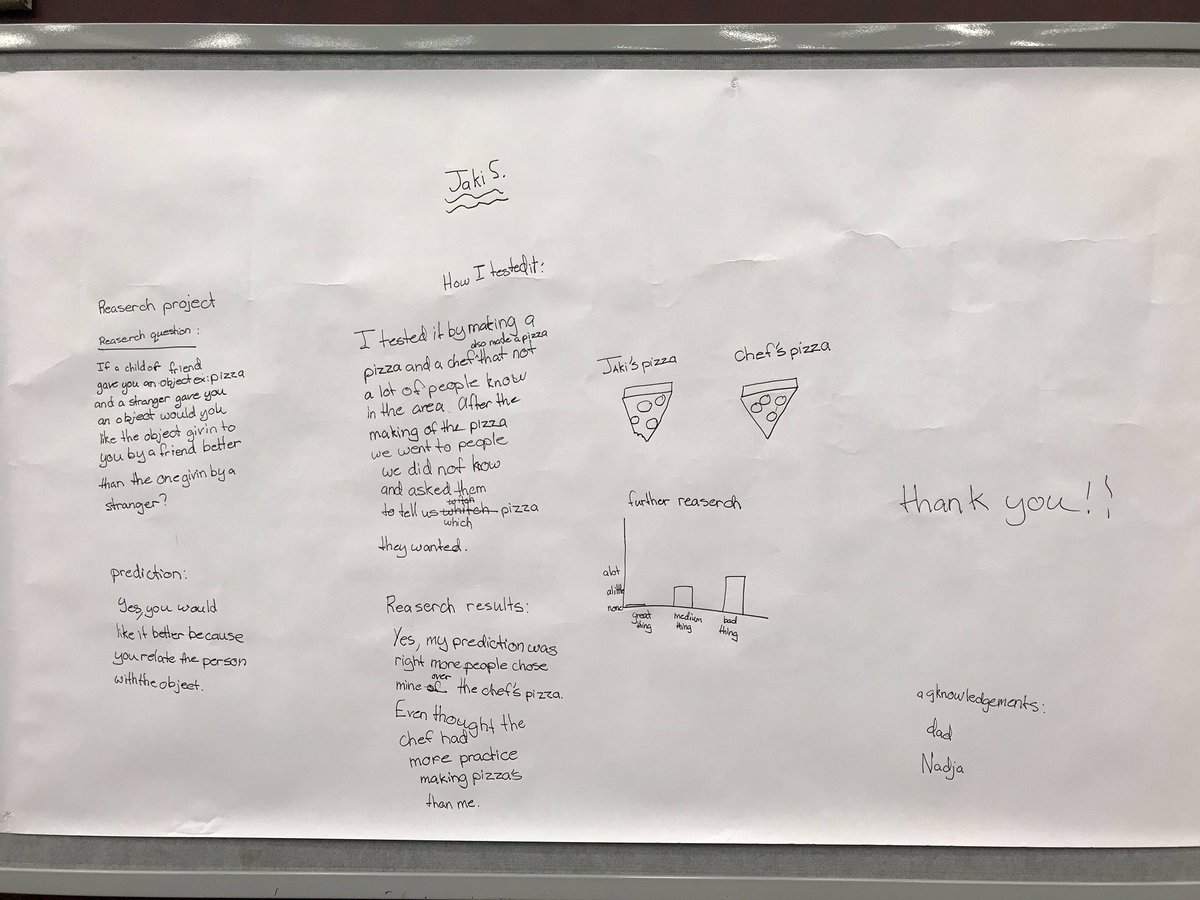 Jaki S.
Reaserch project
Reaserch question:
If a child of friend
gave you an object ex: pizza
and a stranger gave you
an object would you
like the object givin to
you by a friend better
than the one givin by a
stranger?
prediction:
Yes, you would
like it better because
you relate the person
with the object.
How I tested it:
I tested it by making a
also made a pizza
pizza and a chef that not
a lot of people know
in the area. After the
making of the pizza
we went to people
we did not know
and asked them
to tell us whitch pizza
which
they wanted.
Reaserch results:
Yes, my prediction was
right more people chose
over
mine of the chef's pizza.
Even thought the
chef had
more practice
making pizza's
than me.
Jaki's pizza
Chef's pizza
further reaserch
alot
alittle
none
great
thing
medium
thing
bad
thing
thank you!!
agknowledgements:
dad
Nadja